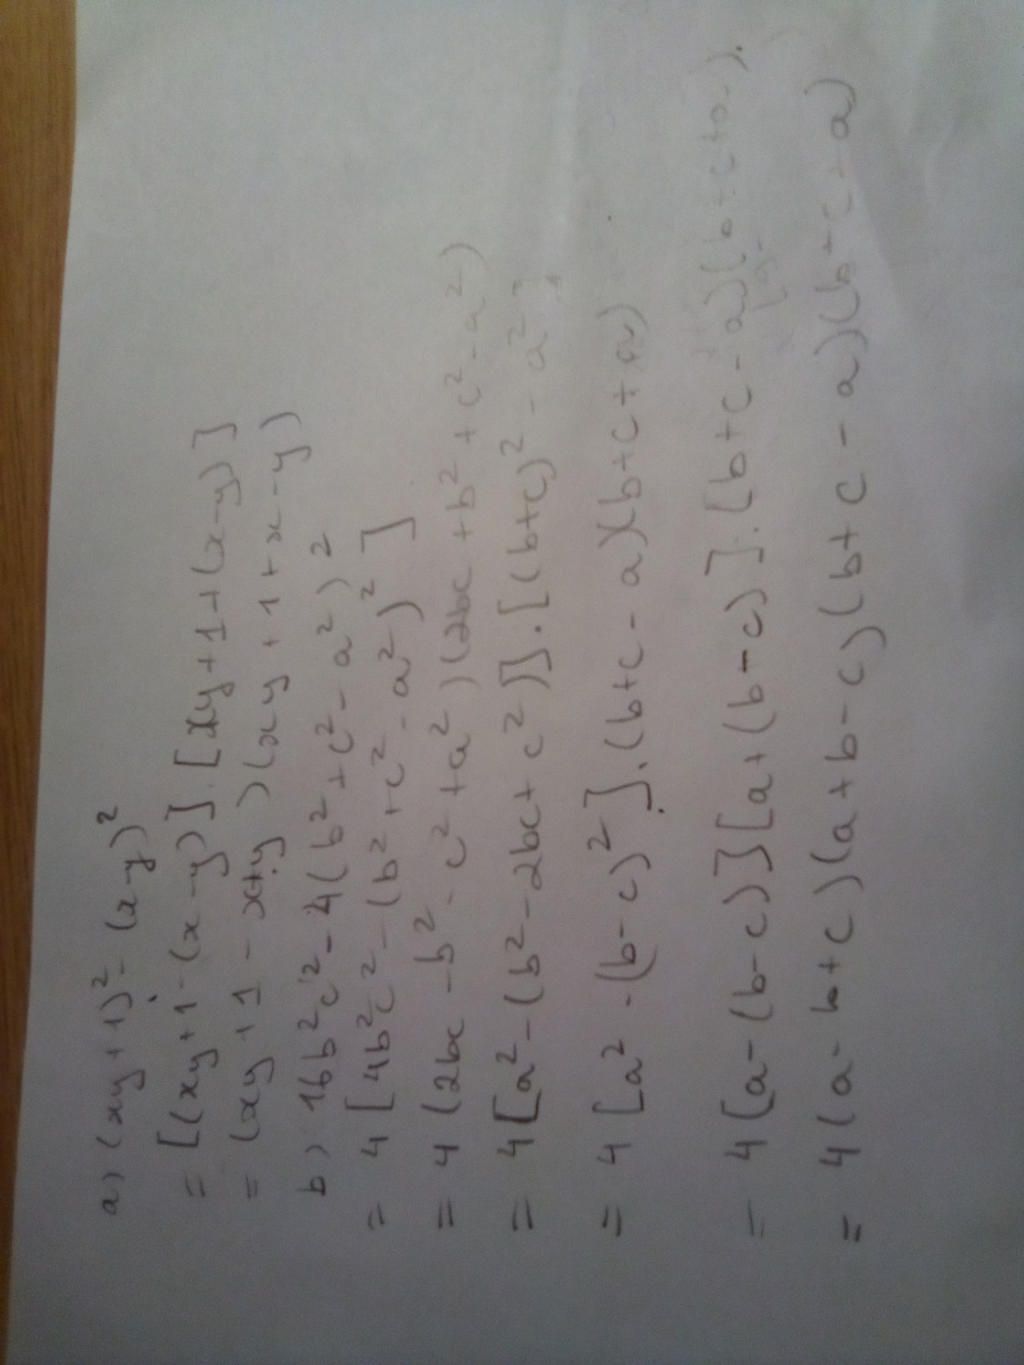 a) (xy+1)² - (x-y)²
= [(xy+1-(x-y)].[xy+1+(x-y)]
= (xy+1-x+y)(xy+1+x-y)
b) 16b²c² - 4(b²+c²-a²)²
= 4[4b²c² - (b²+c²-a²)²]
= 4(2bc-b²-c²+a²)(2bc+b²+c²-a²)
= 4[a²-(b²-2bc+c²)].[(b+c)²-a²]
= 4[a²-(b-c)²].(b+c-a)(b+c+a)
= 4[a-(b-c)][a+(b-c)].(b+c-a)(b+c+a).
= 4(a-b+c)(a+b-c)(b+c-a)(b+c+a)